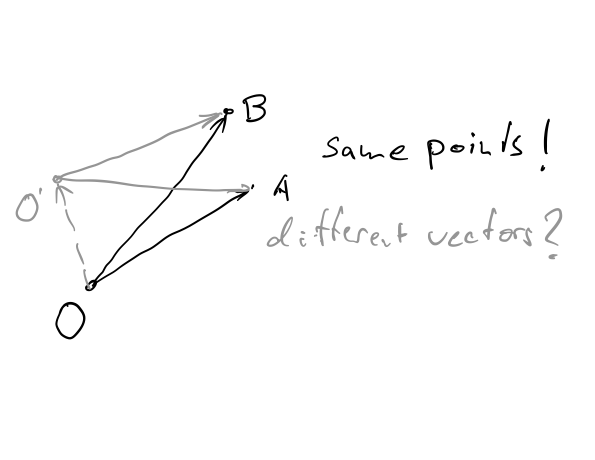 B
same points!
A
O'
different vectors?
O